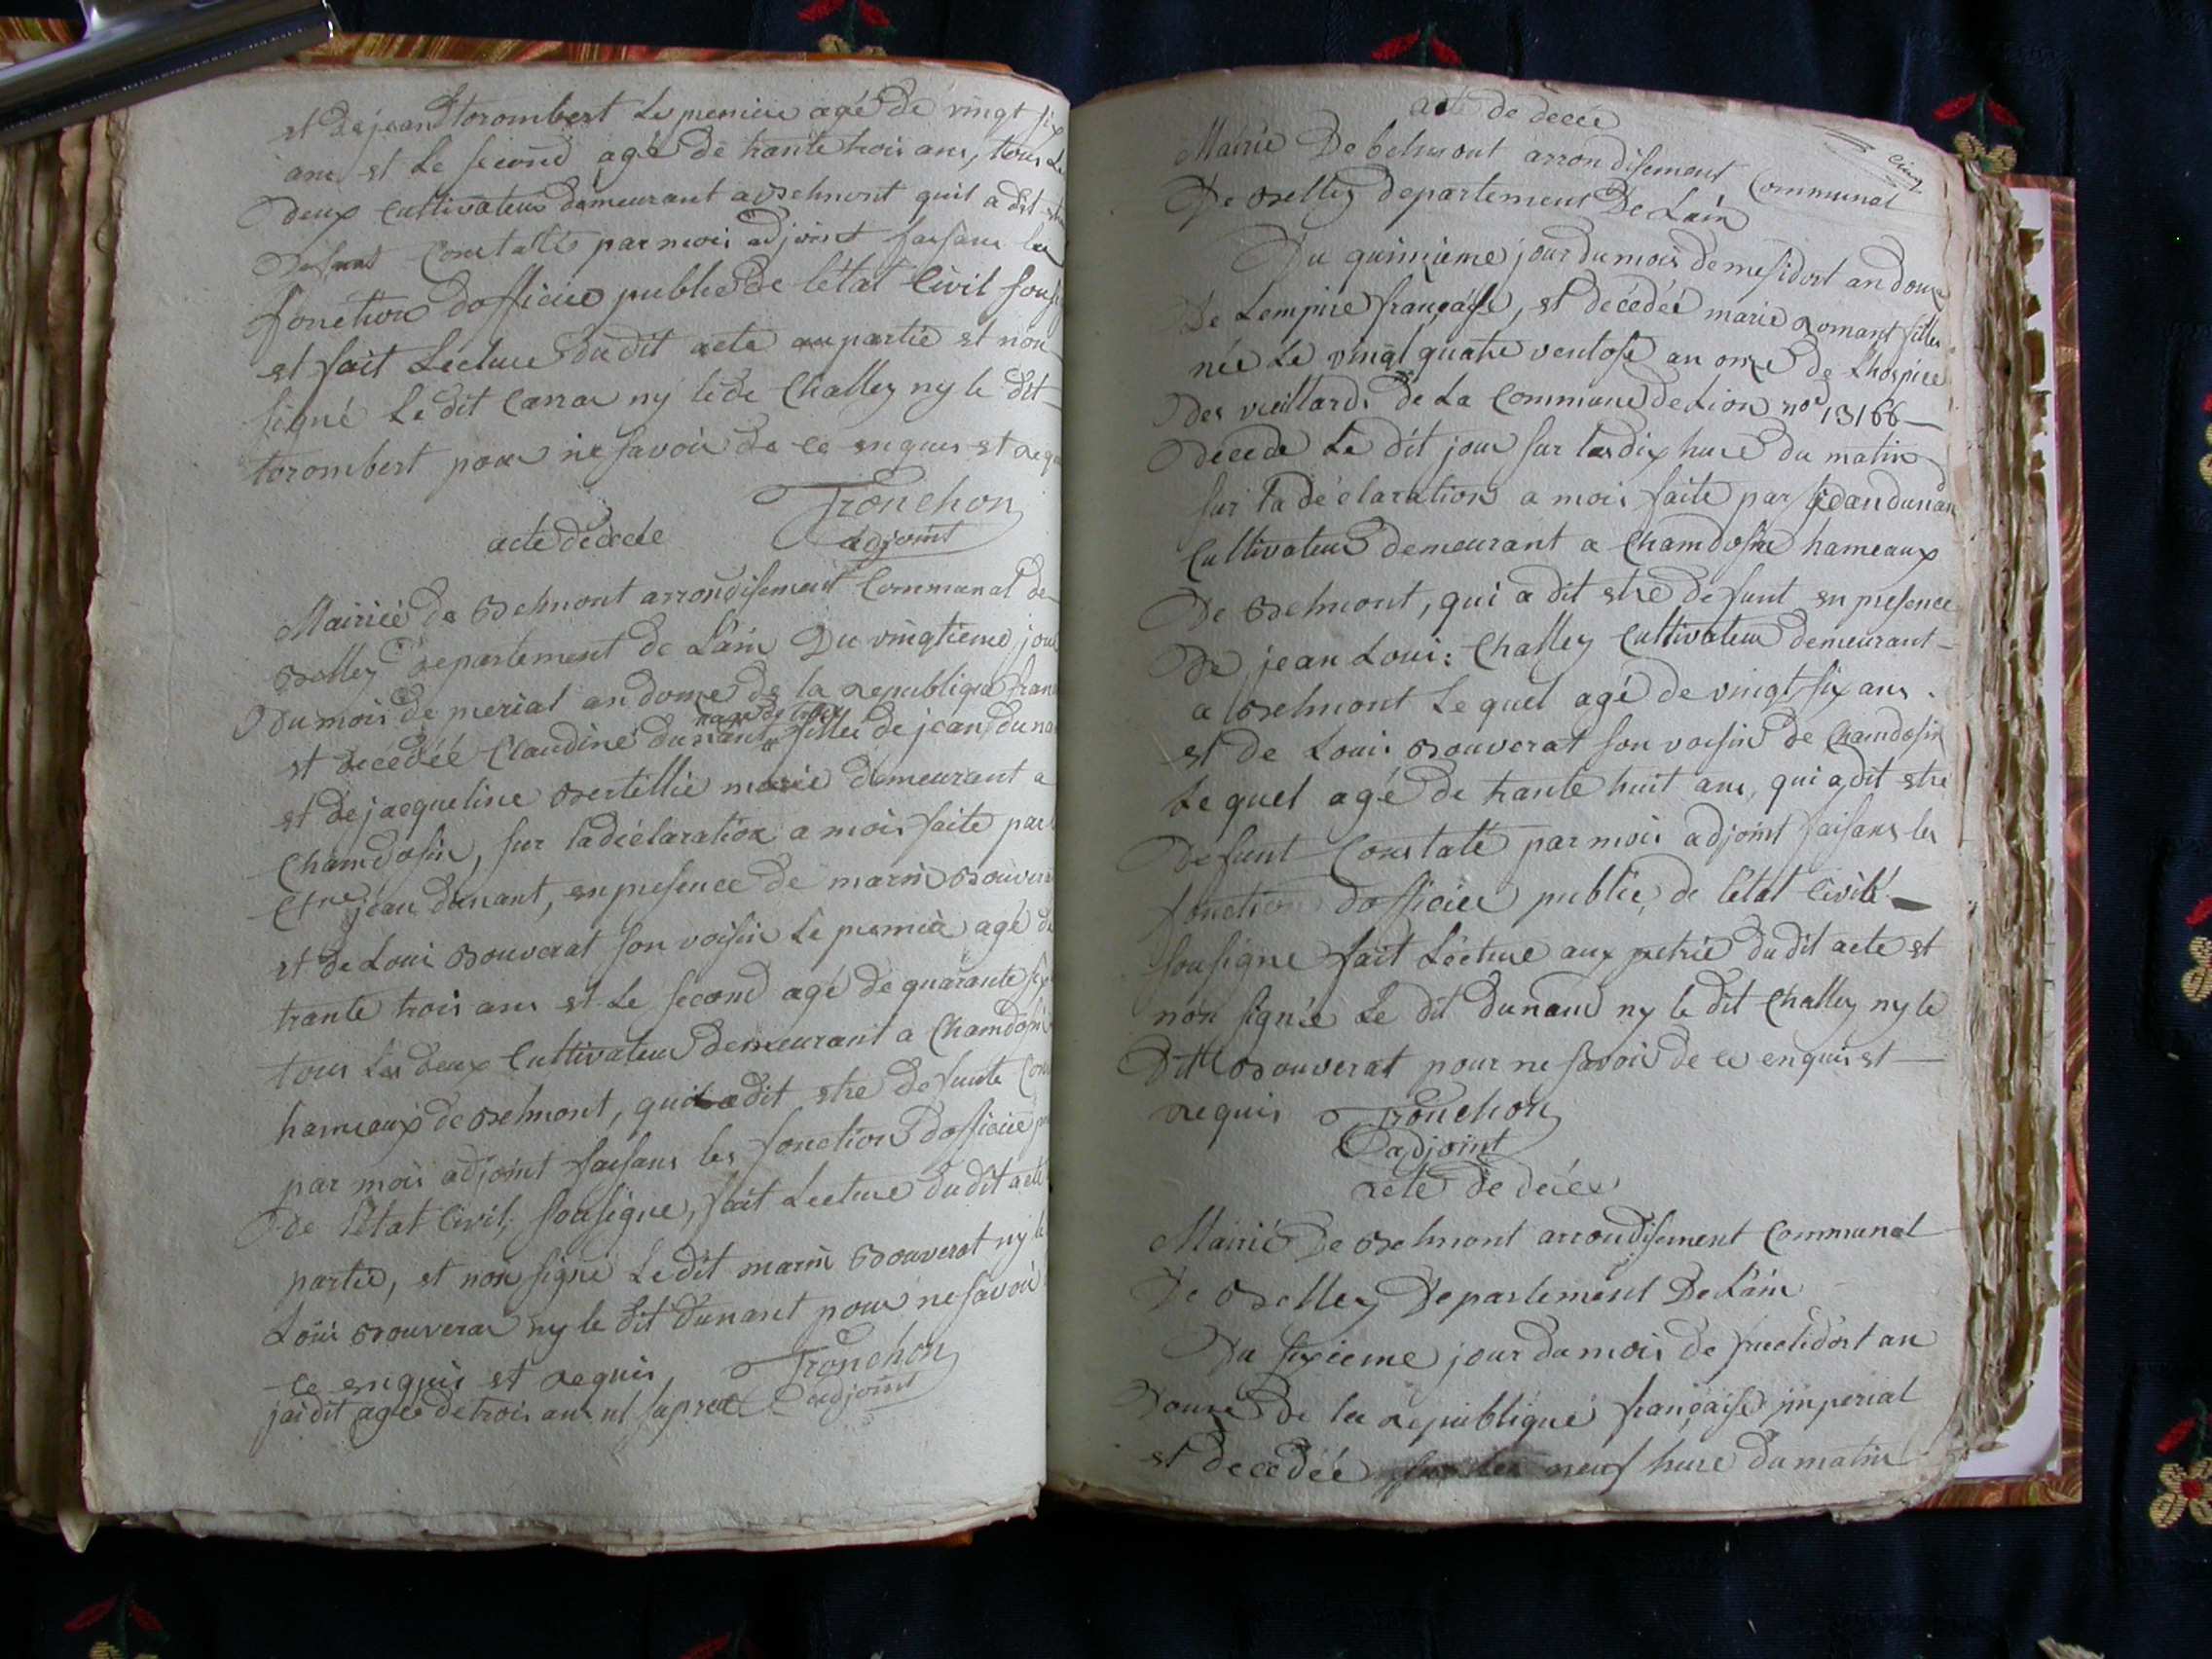 et de jean torombert Le premier agé de vingt six
ans et Le second agé de trante trois ans, tous Les
deux Cultivateur demeurant a Belmont quil a dit
defunt Constatté par moi adjoint faisans les
fonction dofficier public de létat Civil sous
et fait Lecture du dit acte au partie et non
signé Le dit Carra ny le de Challey ny le dit
torombert pour ne savoir de ce enquis et requ
Tronchon
adjoint
acte de decte
Mairie de Belmont arrondisement Communal de
Belley departement de Lain Du vingtieme jour
Du mois de prerial an douze de la republique fran
est decedée Claudine dunant fille de jean duna
et de jacqueline Bertillié marié demeurant a
Chamdosin, sur la déclaration a moi faite par
jean dunant, en presence de marin Bouvera
et de Loui Bouverat son voisin Le premié agé de
trante trois ans et Le second agé de quarante six
tous Les deux Cultivateur demeurant a Chamdosin
hameaux de Belmont, qui a dit etre defunte Cons
par moi adjoint faisans les fonction dofficier pu
De létat Civil, sousigne, fait Lecture du dit acte
partie, et non signé Le dit marin Bouverat ny le
Loui Bouverat ny le dit dunant pour ne savoir
ce enquis et requis Tronchon
jai dit agée de trois ans ut supra adjoint
acte de decée
Mairie De belmont arrondisement Communal
De Belley departement De Lain
Du quinzieme jour du mois de mesidort an douze
De Lempire française, est décedée marie romant fille
née Le vingt quatre ventose an onze de Lhospice
Des vieillards de La Commune de Lion no 13166
decede Le dit jour sur Les dix hure du matin
sur la déclaration a moi faite par jean dunan
Cultivateur demeurant a Chamdosin hameaux
De Belmont, qui a dit etre defunt en presence
De jean Loui: Challey Cultivateur demeurant
a Belmont Le quel agé de vingt six ans
et de Loui Bouverat son voisin de Chamdosin
Le quel agé de trante huit ans, qui a dit etre
defunt Constaté par moi adjoint faisans les
fonction dofficier public de létat Civil
sousigne fait Lécture aux petrie du dit acte et
non signée Le dit dunand ny le dit Challey ny le
Ditt Bouverat pour ne savoir de ce enquis et
requis Tronchon
adjoint
acte de décée
Mairie De Belmont arrondisement Communal
De Belley Departement De Lain
Du sixieme jour du mois de fructidort an
Douze de la republique française jmperial
est decedée sur les neuf hure du matin